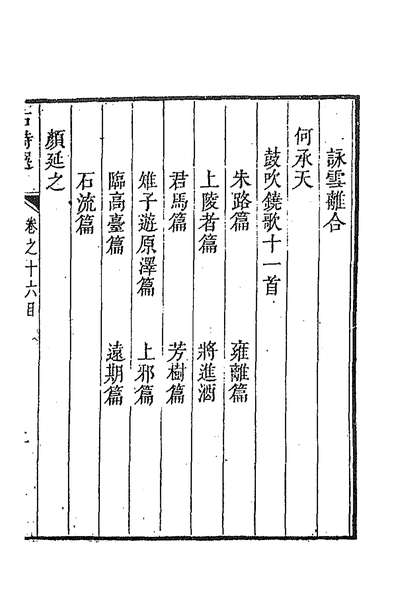 詠雪離合
何承天
鼓吹鐃歌十一首
朱路篇 雍離篇
上陵者篇 將進酒
君馬篇 芳樹篇
雉子遊原澤篇 上邪篇
臨高臺篇 遠期篇
石流篇
顏延之
卷之十六目